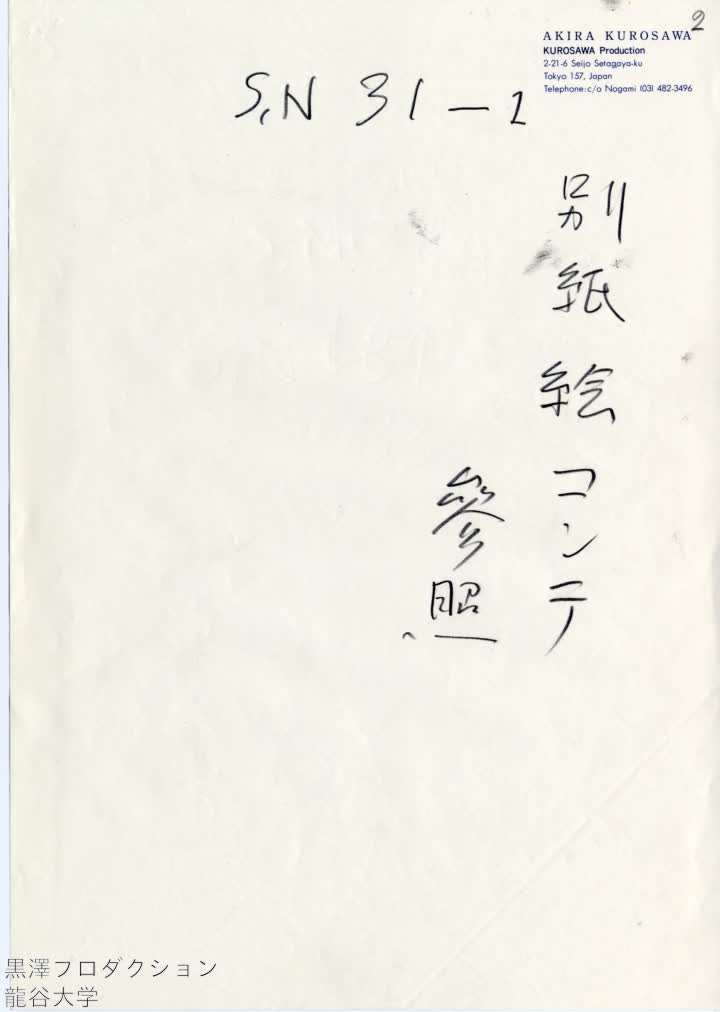 2
AKIRA KUROSAWA
KUROSAWA Production
2-21-6 Seijo Setagaya-ku
Tokyo 157, Japan
Telephone: c/o Nogami (03) 482-3496
S,N 31-1
別紙絵コンテ
參照
黒澤プロダクション
龍谷大学